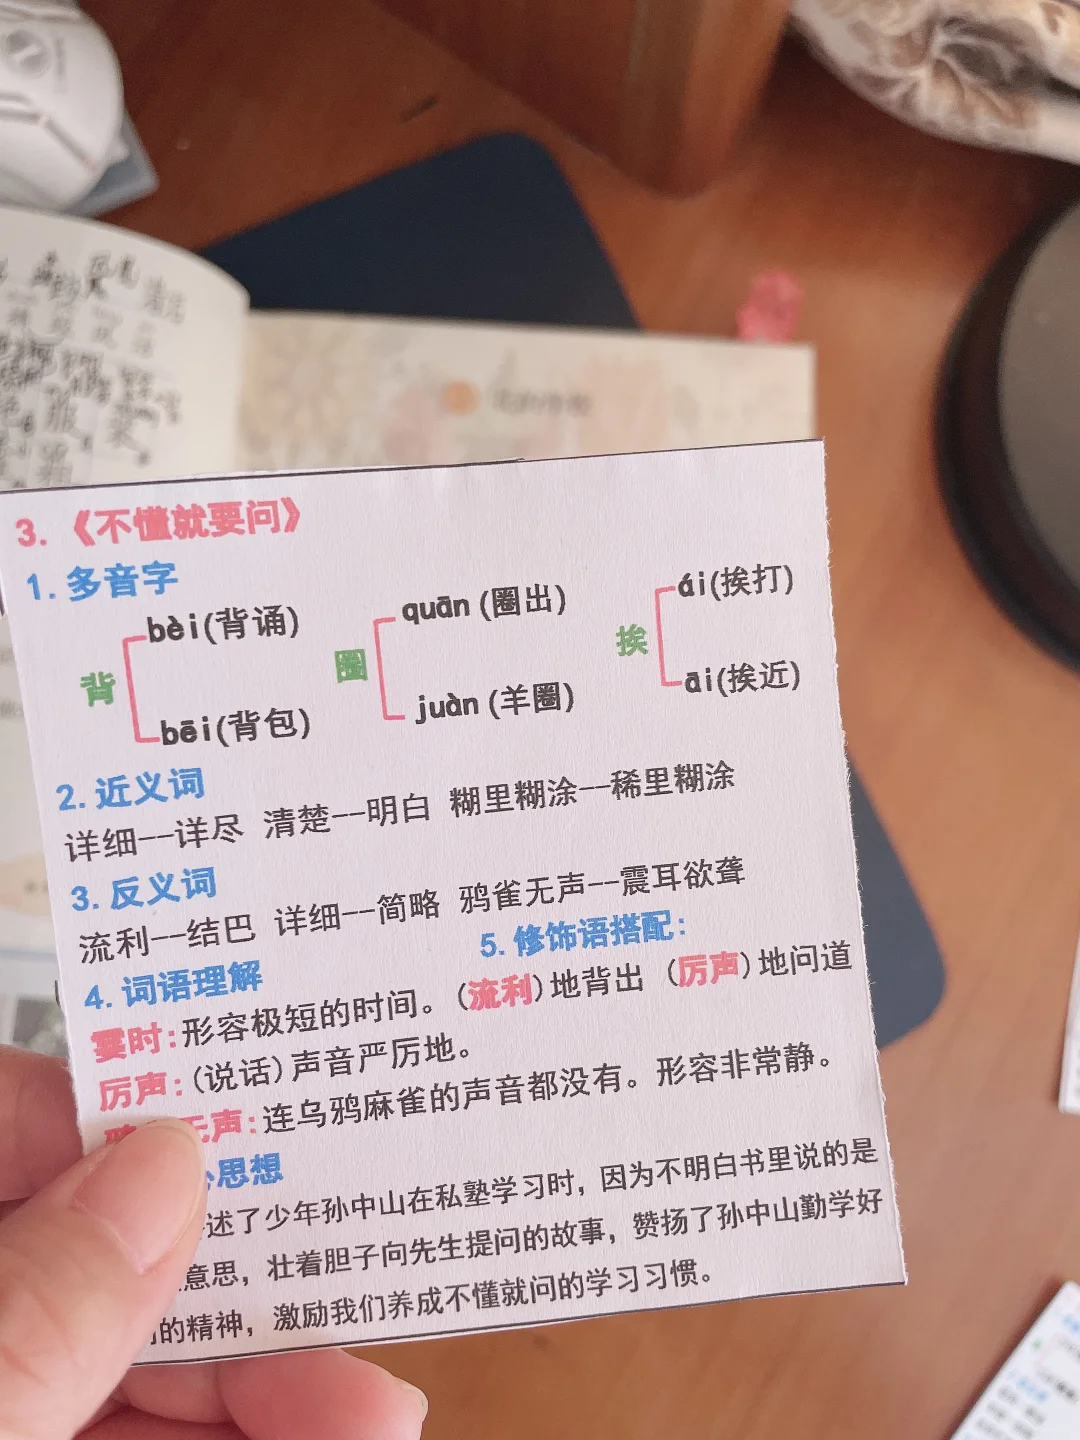 3.《不懂就要问》
1.多音字
背 bèi(背诵) bēi(背包)
圈 quān(圈出) juàn(羊圈)
挨 ái(挨打) āi(挨近)
2.近义词
详细--详尽 清楚--明白 糊里糊涂--稀里糊涂
3.反义词
流利--结巴 详细--简略 鸦雀无声--震耳欲聋
4.词语理解
霎时:形容极短的时间。
厉声:(说话)声音严厉地。
无声:连乌鸦麻雀的声音都没有。形容非常静。
5.修饰语搭配:
(流利)地背出 (厉声)地问道
思想
述了少年孙中山在私塾学习时，因为不明白书里说的是
意思，壮着胆子向先生提问的故事，赞扬了孙中山勤学好
的精神，激励我们养成不懂就问的学习习惯。